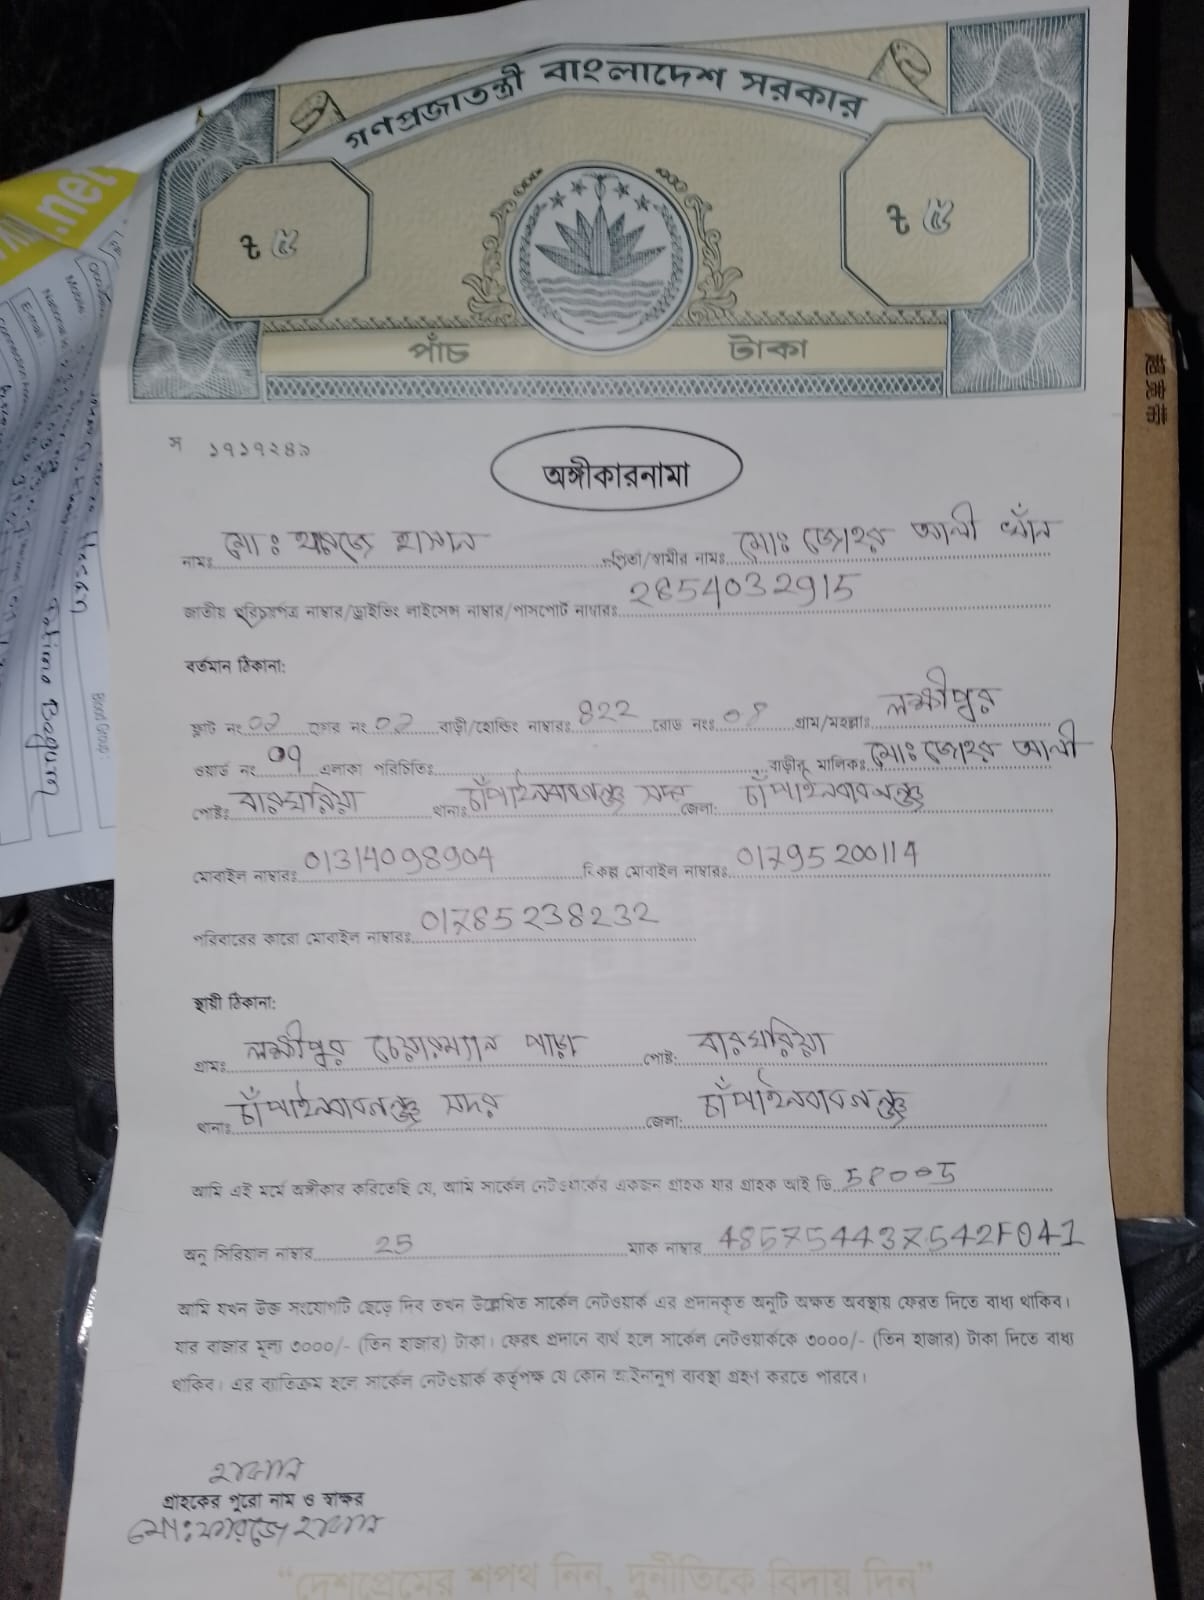 গণপ্রজাতন্ত্রী বাংলাদেশ সরকার
৳ ৫
৳ ৫
পাঁচ টাকা
স ১৭১৭২৪৯
অঙ্গীকারনামা
নামঃ মোঃ হাসান পিতা/স্বামীর নামঃ মোঃ জোহর আলী খাঁন
জাতীয় পরিচয়পত্র নাম্বার/ড্রাইভিং লাইসেন্স নাম্বার/পাসপোর্ট নাম্বারঃ 2854032915
বর্তমান ঠিকানা:
ফ্লাট নং ০২ ফ্লোর নং ০২ বাড়ী/হোল্ডিং নাম্বারঃ 822 রোড নংঃ ০৪ গ্রাম/মহল্লাঃ লক্ষীপুর
ওয়ার্ড নং ০৭ এলাকা পরিচিতিঃ বাড়ীর মালিকঃ মোঃ জোহর আলী
পোষ্টঃ বারঘরিয়া থানাঃ চাঁপাইনবাবগঞ্জ সদর জেলা: চাঁপাইনবাবগঞ্জ
মোবাইল নাম্বারঃ 01314098904 বিকল্প মোবাইল নাম্বারঃ 01795200114
পরিবারের কারো মোবাইল নাম্বারঃ 01785238232
স্থায়ী ঠিকানা:
গ্রামঃ লক্ষীপুর চেয়ারম্যান পাড়া পোষ্ট: বারঘরিয়া
থানাঃ চাঁপাইনবাবগঞ্জ সদর জেলা: চাঁপাইনবাবগঞ্জ
আমি এই মর্মে অঙ্গীকার করিতেছি যে, আমি সার্কেল নেটওয়ার্কের একজন গ্রাহক যার গ্রাহক আই ডি 58005
অনু সিরিয়াল নাম্বার 25 ম্যাক নাম্বার 485754437542F041
আমি যখন উক্ত সংযোগটি ছেড়ে দিব তখন উল্লেখিত সার্কেল নেটওয়ার্ক এর প্রদানকৃত অনুটি অক্ষত অবস্থায় ফেরত দিতে বাধ্য থাকিব।
যার বাজার মূল্য ৩০০০/- (তিন হাজার) টাকা। ফেরৎ প্রদানে ব্যর্থ হলে সার্কেল নেটওয়ার্ককে ৩০০০/- (তিন হাজার) টাকা দিতে বাধ্য
থাকিব। এর ব্যতিক্রম হলে সার্কেল নেটওয়ার্ক কর্তৃপক্ষ যে কোন আইনানুগ ব্যবস্থা গ্রহণ করতে পারবে।
হাসান
গ্রাহকের পুরো নাম ও স্বাক্ষর
মোঃ হাসান
"দেশপ্রেমের শপথ নিন, দুর্নীতিকে বিদায় দিন"
.net
Mobile
E-mail
Blood Group:
Fatima Begum